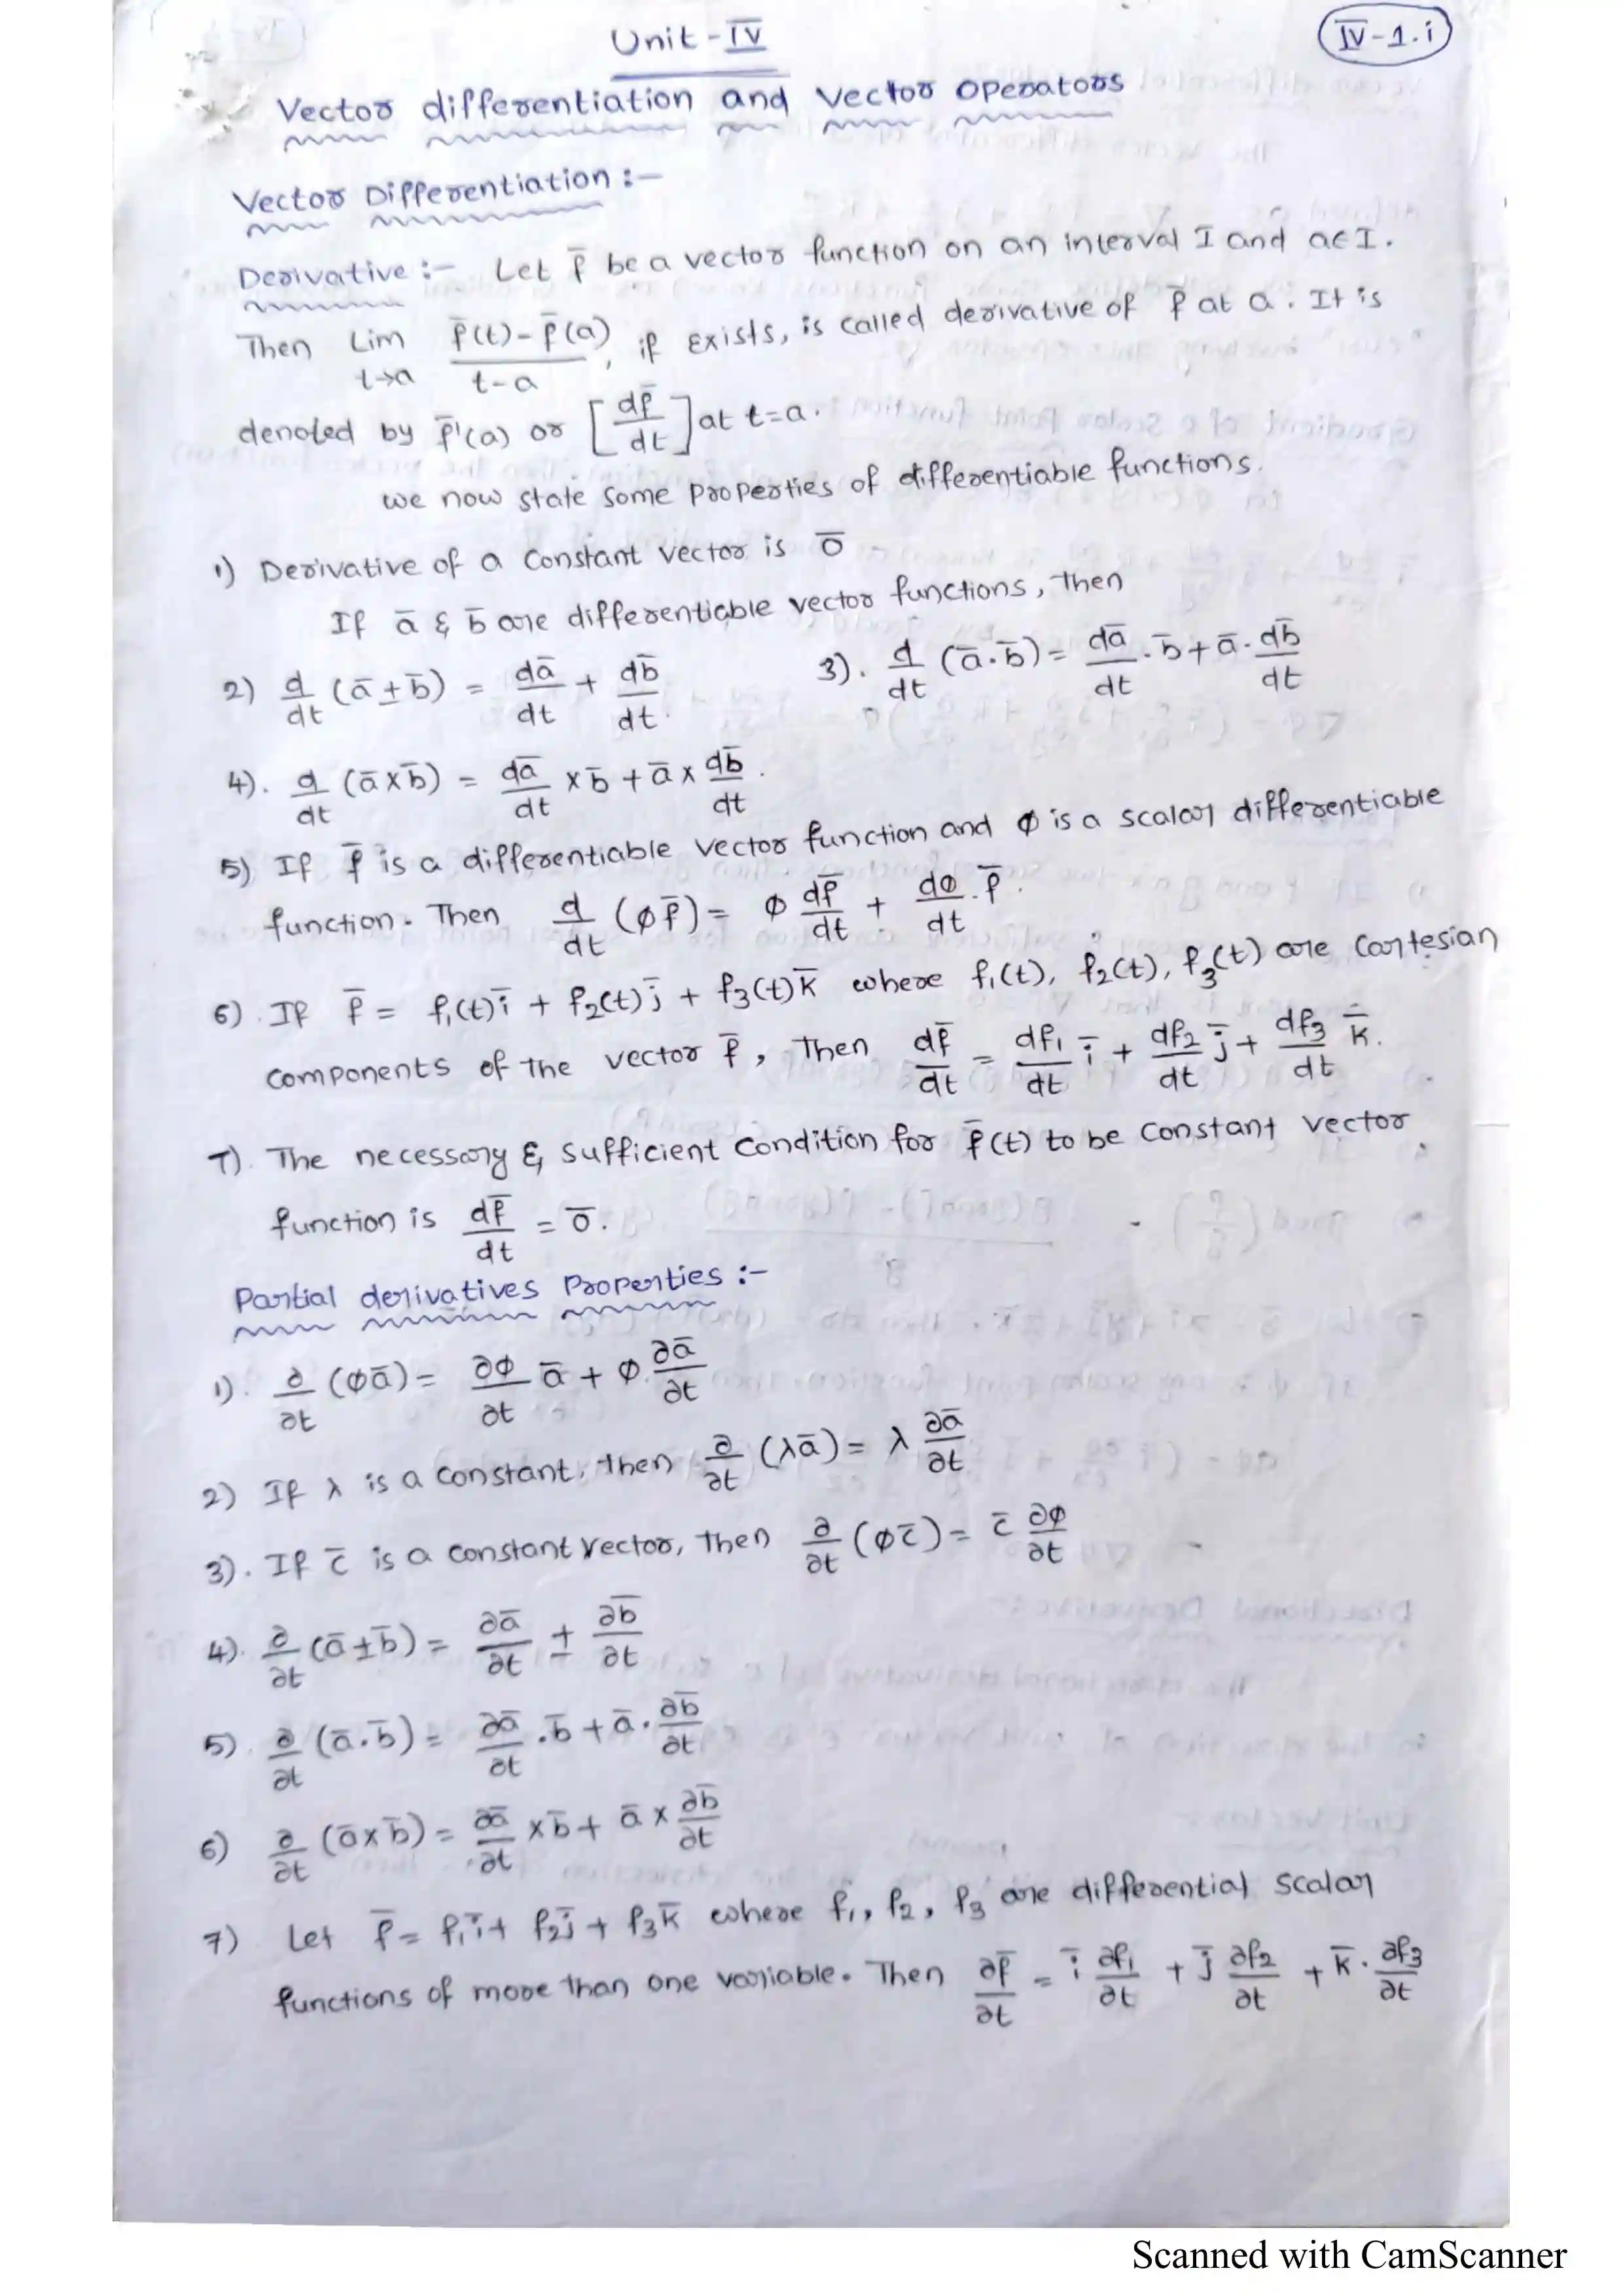 Unit-IV
IV-1.i
Vector differentiation and Vector Operators
Vector Differentiation :-
Derivative :- Let f̄ be a vector function on an interval I and a∈I.
Then Lim t→a (f̄(t)-f̄(a))/(t-a), if exists, is called derivative of f̄ at a. It is
denoted by f̄'(a) or [df̄/dt] at t=a.
we now state some properties of differentiable functions.
1) Derivative of a constant vector is ō
If ā & b̄ are differentiable vector functions, Then
2) d/dt (ā±b̄) = dā/dt + db̄/dt. 3). d/dt (ā.b̄) = dā/dt . b̄ + ā. db̄/dt
4). d/dt (ā×b̄) = dā/dt × b̄ + ā × db̄/dt.
5) If f̄ is a differentiable vector function and φ is a scalar differentiable
function. Then d/dt (φf̄) = φ df̄/dt + dφ/dt . f̄.
6). If f̄ = f₁(t)ī + f₂(t)j̄ + f₃(t)k̄ where f₁(t), f₂(t), f₃(t) are cartesian
components of the vector f̄, Then df̄/dt = df₁/dt ī + df₂/dt j̄ + df₃/dt k̄.
7). The necessary & sufficient condition for f̄(t) to be constant vector
function is df̄/dt = ō.
Partial derivatives Properties :-
1). ∂/∂t (φā) = ∂φ/∂t ā + φ. ∂ā/∂t
2) If λ is a constant, then ∂/∂t (λā) = λ ∂ā/∂t
3). If c̄ is a constant vector, Then ∂/∂t (φc̄) = c̄ ∂φ/∂t
4). ∂/∂t (ā±b̄) = ∂ā/∂t ± ∂b̄/∂t
5). ∂/∂t (ā.b̄) = ∂ā/∂t .b̄ + ā. ∂b̄/∂t
6) ∂/∂t (ā×b̄) = ∂ā/∂t ×b̄ + ā × ∂b̄/∂t
7) Let f̄ = f₁ī + f₂j̄ + f₃k̄ where f₁, f₂, f₃ are differential scalar
functions of more than one variable. Then ∂f̄/∂t = ī ∂f₁/∂t + j̄ ∂f₂/∂t + k̄. ∂f₃/∂t
Scanned with CamScanner